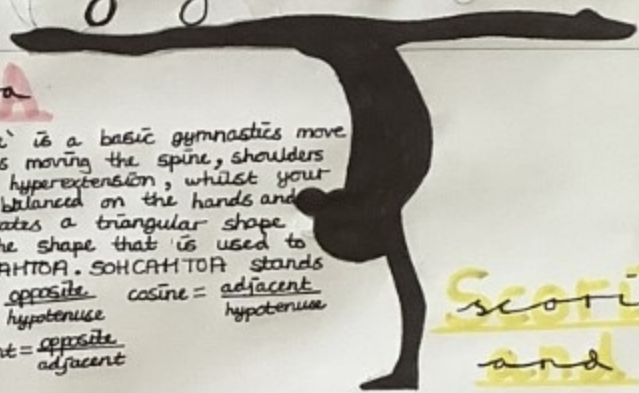 a
is a basic gymnastics move
moving the spine, shoulders
hyperextension, whilst your
balanced on the hands and
ates a triangular shape
he shape that is used to
AHTOA. SOHCAHTOA stands
opposite cosine = adjacent
hypotenuse hypotenuse
nt = opposite
adjacent
Scori
scori
and